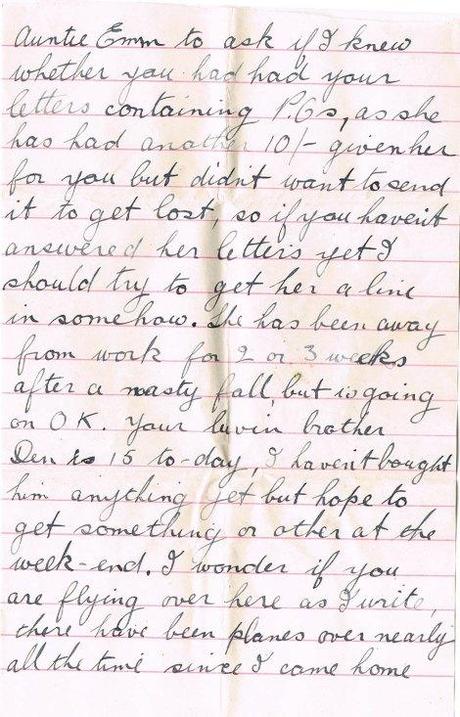 Auntie Emm to ask if I knew
whether you had had your
letters containing P.Os, as she
has had another 10/- given her
for you but didn't want to send
it to get lost, so if you haven't
answered her letters yet I
should try to get her a line
in somehow. She has been away
from work for 2 or 3 weeks
after a nasty fall, but is going
on OK. Your twin brother
Den is 15 to-day, I haven't bought
him anything yet but hope to
get something or other at the
week-end. I wonder if you
are flying over here as I write,
there have been planes over nearly
all the time since I came home